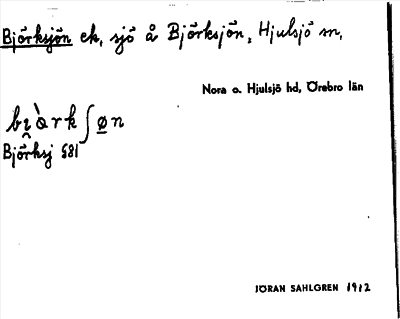 Björksjön ek, sjö å Björksjön, Hjulsjö sn,
Nora o. Hjulsjö hd, Örebro län
Björksj §81
JÖRAN SAHLGREN 1912